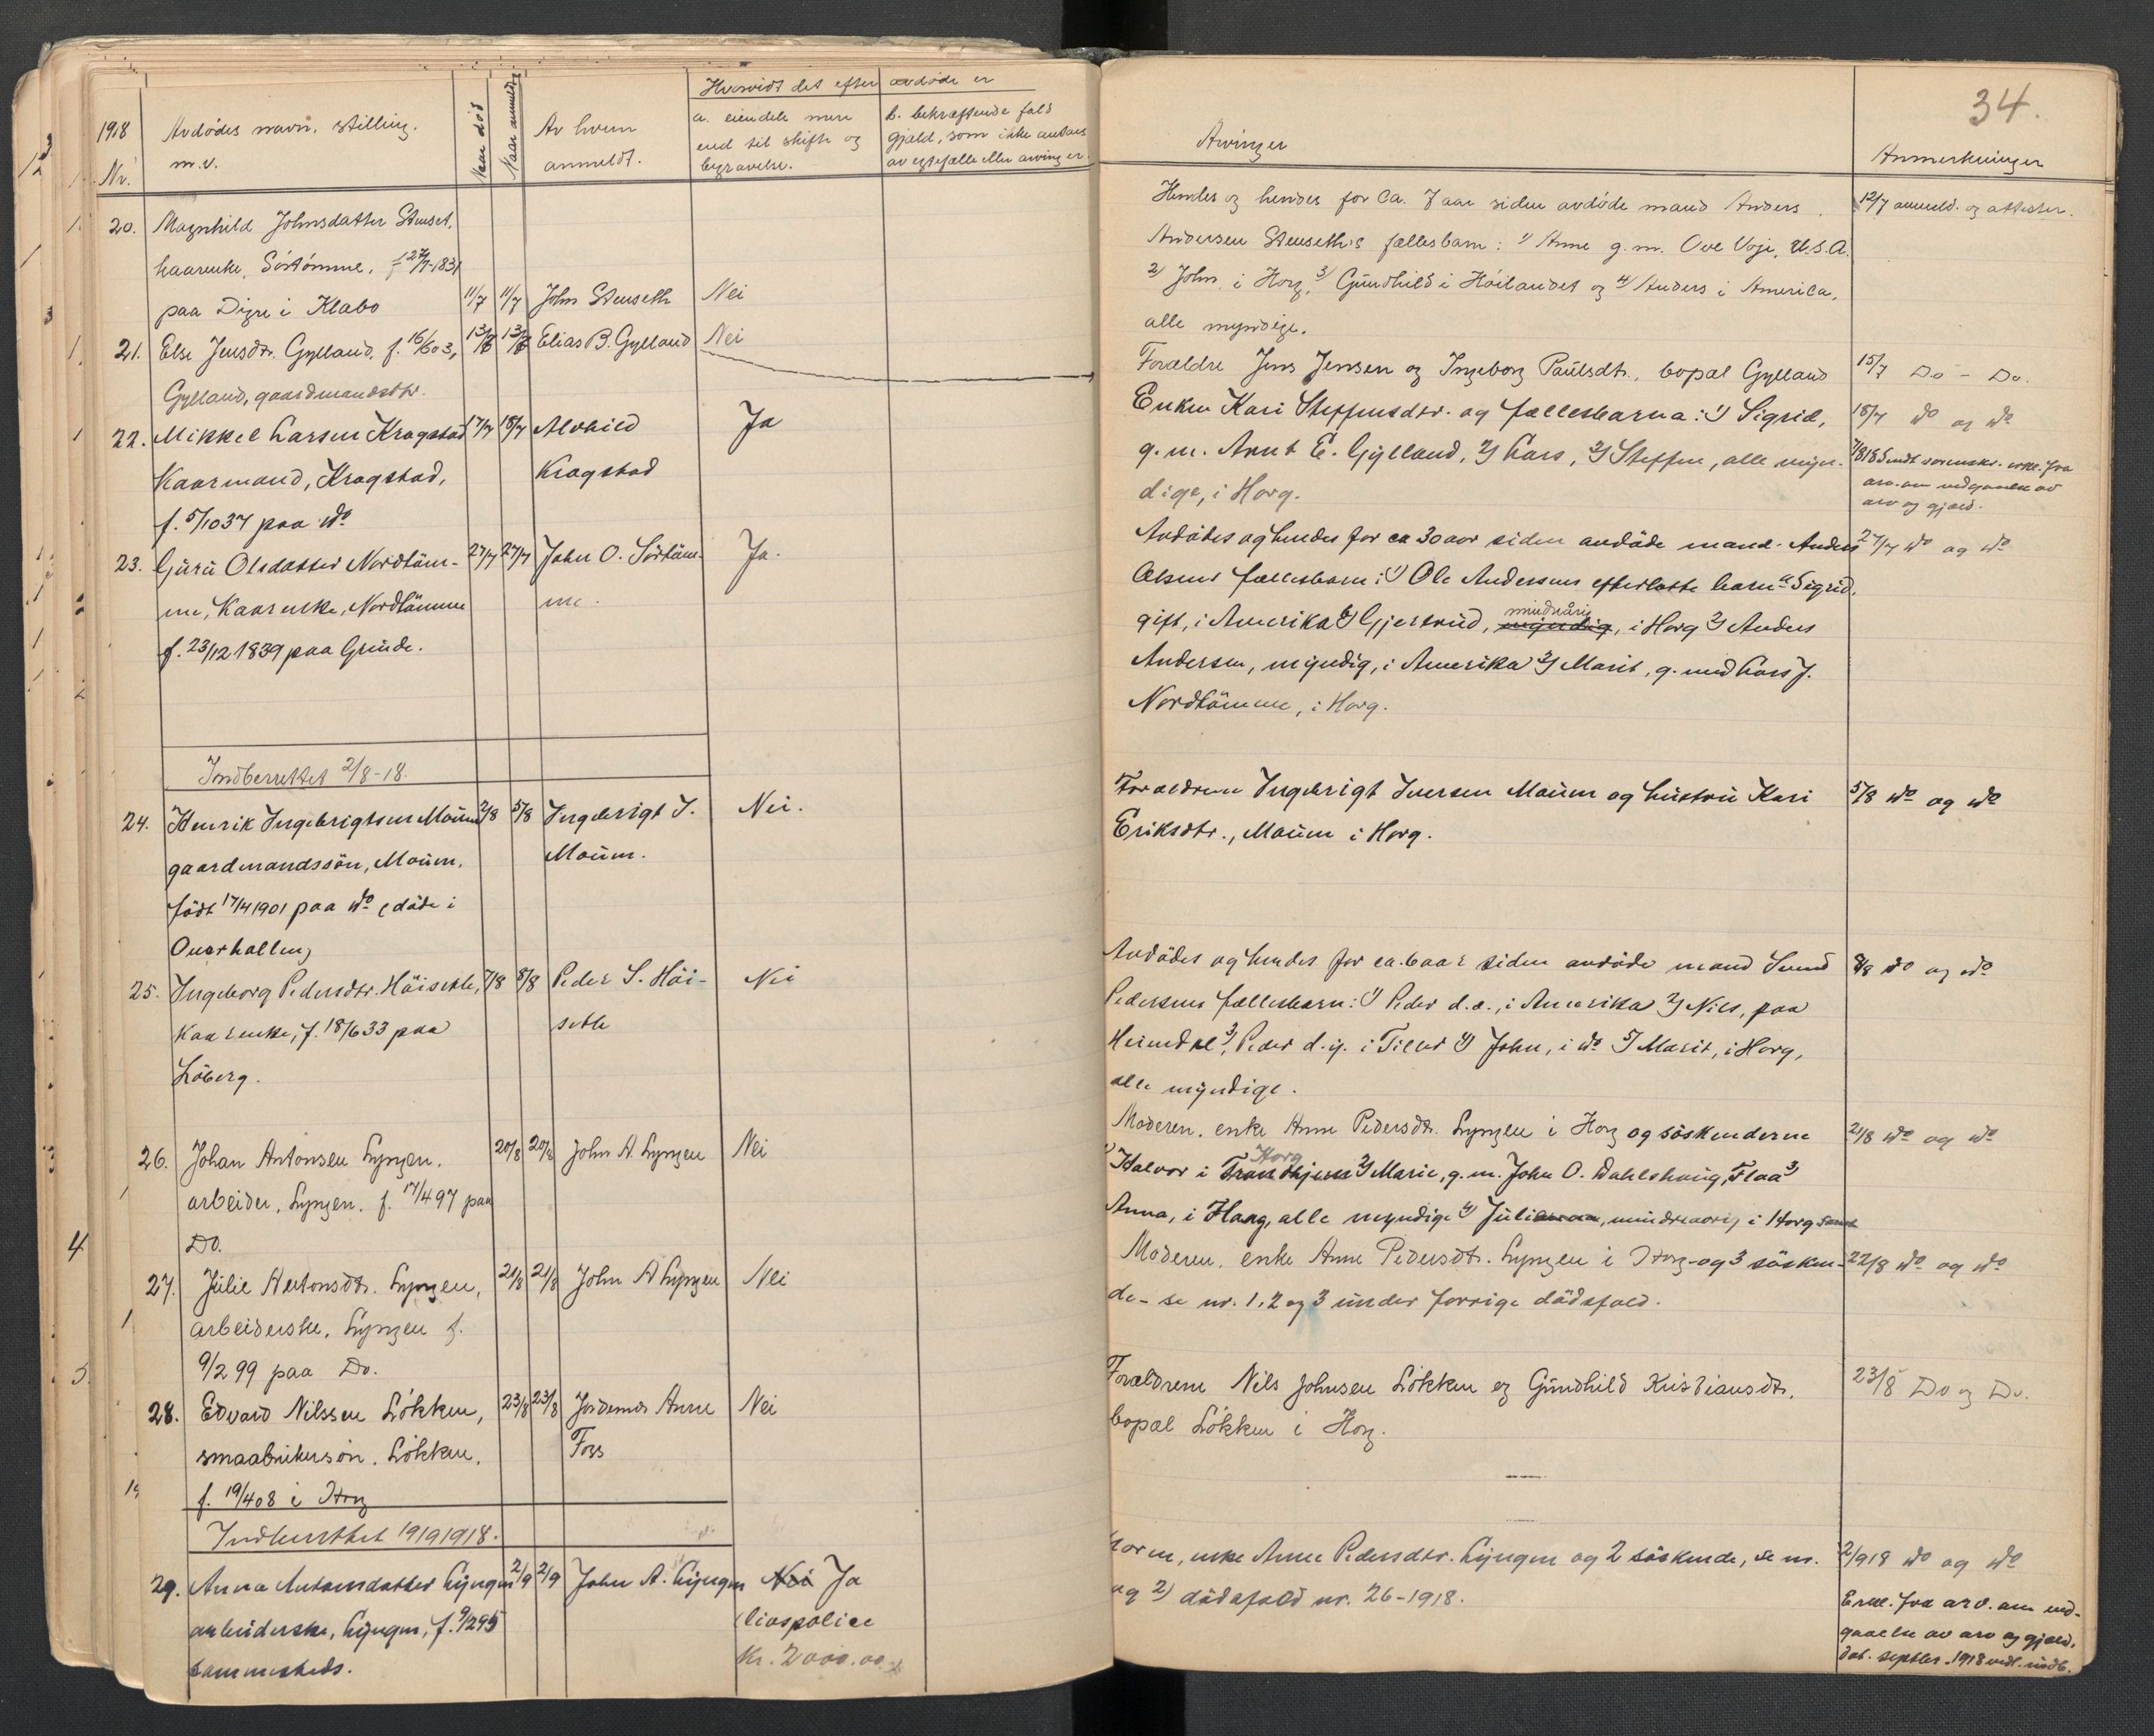 34.
1918
Nr.
Avdödes navn, stilling.
m.v.
Naar död
Naar anmeldt
Av hvem
anmeldt.
Hvorvidt det efter avdöde er
a. eiendele mere
end til skifte og
begravelse.
b. bekræftende fald
gjæld, som ikke antaes
av egtefælle eller arvinger.
Arvinger
Anmerkninger
20. Magnhild Johnsdatter Stenset,
kaarenke, Sörtömme, f 27/7-1831
paa Digre i Klæbo 11/7 11/7 John Stenseth Nei
Hendes og hendes for ca. 7 aar siden avdöde mand Anders
Andersen Stenseth's fællesbarn: 1) Anne g.m. Ove Voje, U.S.A.
2) John, i Horg, 3) Gundhild i Höilandet og 4) Anders i America,
alle myndige.
12/7 anmeld. og attester.
21. Else Jensdtr. Gylland, f. 16/6 03, 13/7 13/7 Elias B. Gylland Nei
Gylland, gaardmandsdtr.
Forældre Jens Jensen og Ingeborg Paulsdtr., bopæl Gylland
15/7 Do - Do.
22. Mikkel Larsen Kragstad 17/7 18/7 Alvhild Ja
Kaarmand, Kragstad, Kragstad
f. 5/10 37 paa do
Enken Kari Steffensdtr. og fællesbarna: 1) Sigrid,
g.m. Arnt E. Gylland, 2) Lars, 3) Steffen, alle myn-
dige, i Horg.
18/7 do og do
7/8 18 Sendt sorenskr. erkl. fra
arv. om vedgaaelse av
arv og gjæld.
23. Guru Olsdatter Nordtöm- 27/7 27/7 John O. Sörtöm- Ja.
me, Kaarenke, Nordtömme me.
f. 23/12 1839 paa Grinde.
Avdödes og hendes for ca 30 aar siden avdöde mand Anders
Olsens fællesbarn: 1) Ole Andersens efterlatte barn a Sigrid,
gift, i Amerika b) Gjertrud, myndig mindreårig, i Horg 2) Anders
Andersen, myndig, i Amerika 3) Marit, g. med Lars J.
Nordtömme, i Horg.
27/7 do og do
Indberettet 2/8-18.
24. Henrik Ingebrigtsen Moum 2/8 5/8 Ingebrigt I. Nei.
gaardmandssön, Moum, Moum.
födt 17/4 1901 paa do (döde i
Overhallen)
Forældrene Ingebrigt Iversen Moum og hustru Kari
Eriksdtr., Moum i Horg.
5/8 do og do
25. Ingeborg Pedersdtr. Höisette, 7/8 8/8 Peder S. Höi- Nei
Kaarenke, f. 18/6 33 paa sette
Löberg.
Avdödes og hendes for ca. 6 aar siden avdöde mand Svend
Pedersens fællesbarn: 1) Peder d.e., i Amerika 2) Nils, paa
Heimdal 3) Peder d.y. i Tiller 4) John, i do 5) Marit, i Horg,
alle myndige.
8/8 do og do
26. Johan Antonsen Lyngen, 20/8 20/8 John A. Lyngen Nei
arbeider, Lyngen, f. 17/4 97 paa
Do.
Moderen, enke Anne Pedersdtr. Lyngen i Horg og söskenderne
1) Halvor i Trondhjem Horg 2) Marie, g.m. John O. Dahlshaug, Flaa 3)
Anna, i Horg, alle myndige 4) Julianna, mindreaarig i Horg samt
21/8 do og do
27. Julie Antonsdtr. Lyngen, 21/8 21/8 John A Lyngen Nei
arbeiderske, Lyngen f.
9/2 99 paa Do.
Moderen, enke Anne Pedersdtr. Lyngen i Horg og 3 sösken-
de - se nr. 1, 2 og 3 under forrige dödsfald.
22/8 do og do
28. Edvard Nilssen Lökken, 23/8 23/8 Jordemor Anne Nei
smaabrukersön, Lökken, Foss
f. 19/4 08 i Horg
Forældrene Nils Johnsen Lökken og Gundhild Kristiansdtr,
bopæl Lökken i Horg.
23/8 Do og Do.
Indberettet 1/9 1918.
29. Anna Antonsdatter Lyngen 2/9 2/9 John A. Lyngen Nei Ja
arbeiderske, Lyngen, f. 9/2 95 livspolice
sammesteds. Kr. 2000.00
Moren, enke Anne Pedersdtr. Lyngen og 2 söskende, se nr.
og 2) dödsfald nr. 26-1918.
2/9 18 do og do
Erkl. fra arv. om ved-
gaaelse av arv og gjæld,
dat. septbr. 1918 vedl. indb.